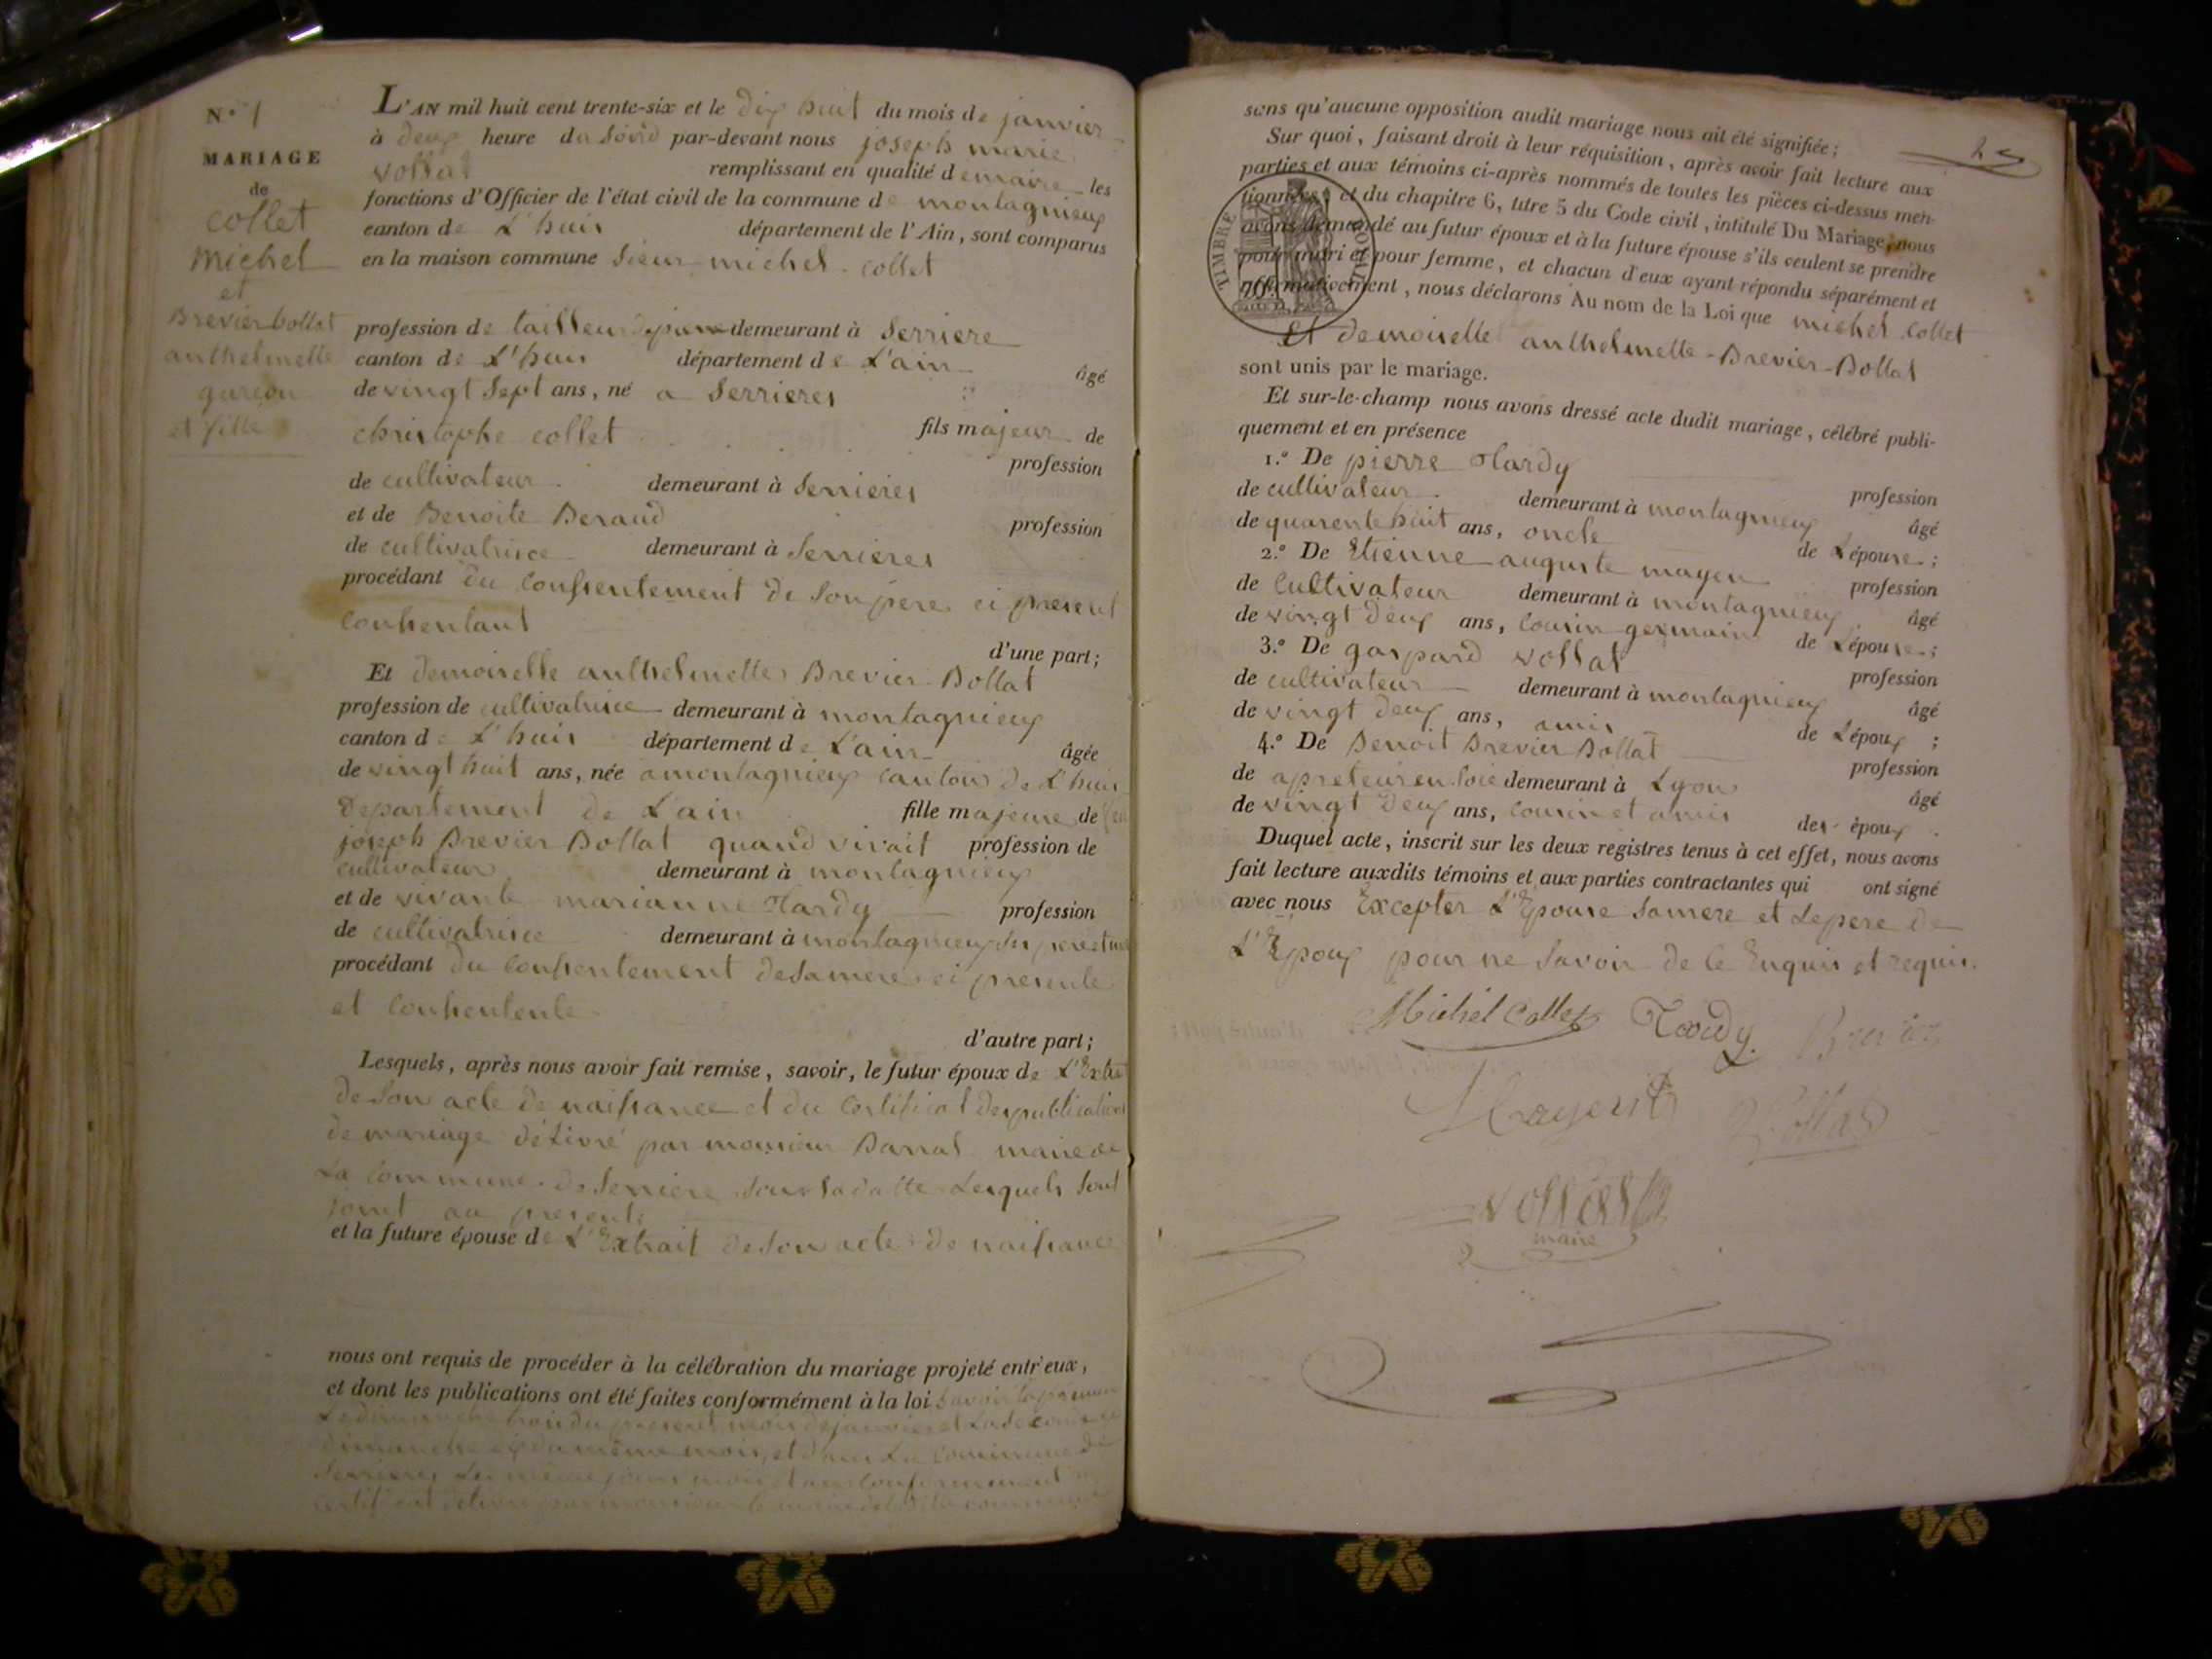 N.° 1
MARIAGE
de
collet
michel
et
Brevier bollat
anthelmette
garcon
et fille
L'AN mil huit cent trente-six et le dix huit du mois de janvier
à deux heure du soird par-devant nous joseph marie
vollat remplissant en qualité de maire les
fonctions d'Officier de l'état civil de la commune de montagnieux
canton de L'huis département de l'Ain, sont comparus
en la maison commune Sieur michel collet
profession de tailleur demeurant à Serriere
canton de L'huis département de L'ain âgé
de vingt Sept ans, né a Serrieres
christophe collet fils majeur de
profession
de cultivateur demeurant à Serrieres
et de Benoite Beraud profession
de cultivatrice demeurant à Serrieres
procédant du consentement de Son pere ci present
consentant
d'une part;
Et demoiselle anthelmette Brevier Bollat
profession de cultivatrice demeurant à montagnieux
canton de L'huis département de L'ain âgée
de vingt huit ans, née a montagnieux canton de L'huis
departement de L'ain fille majeure de feu
joseph Brevier Bollat quand vivait profession de
cultivateur demeurant à montagnieux
et de vivante marianne Tardy profession
de cultivatrice demeurant à montagnieux
procédant du consentement de sa mere ci presente
et consentente
d'autre part;
Lesquels, après nous avoir fait remise, savoir, le futur époux de L'Extrait
de Son acte de naissance et du certificat des publication
de mariage délivré par monsieur Barral maire de
La commune de Serriere Sous sa datte Lesquels Sont
joint au present;
et la future épouse de L'Extrait de Son acte de naissance
nous ont requis de procéder à la célébration du mariage projeté entr'eux,
et dont les publications ont été faites conformément à la loi savoir la premiere
Le dimanche trois du present mois de janvier et La Seconde
dimanche dix du même mois, et dans La commune de
Serrieres Les mêmes jours mois et an conformement
certificat délivré par monsieur le maire de la commune
25
sans qu'aucune opposition audit mariage nous ait été signifiée;
Sur quoi, faisant droit à leur réquisition, après avoir fait lecture aux
parties et aux témoins ci-après nommés de toutes les pièces ci-dessus men-
tionnées, et du chapitre 6, titre 5 du Code civil, intitulé Du Mariage, nous
avons demandé au futur époux et à la future épouse s'ils veulent se prendre
pour mari et pour femme, et chacun d'eux ayant répondu séparément et
affirmativement, nous déclarons Au nom de la Loi que michel collet
TIMBRE ROYAL
70
Et demoiselle anthelmette Brevier-Bollat
sont unis par le mariage.
Et sur-le-champ nous avons dressé acte dudit mariage, célébré publi-
quement et en présence
1.° De pierre Tardy profession
de cultivateur demeurant à montagnieux âgé
de quarente huit ans, oncle de L'épouse;
2.° De Etienne auguste mayen profession
de cultivateur demeurant à montagnieux âgé
de vingt deux ans, cousin germain de L'épouse;
3.° De gaspard vollat profession
de cultivateur demeurant à montagnieux âgé
de vingt deux ans, amis de L'époux;
4.° De Benoit Brevier Bollat profession
de apreteur en soie demeurant à Lyon âgé
de vingt deux ans, cousin et amis des époux.
Duquel acte, inscrit sur les deux registres tenus à cet effet, nous avons
fait lecture auxdits témoins et aux parties contractantes qui ont signé
avec nous Excepter L'Epouse Sa mere et Le pere de
L'Epoux pour ne Savoir de ce Enquis et requis.
Michel Collet Tardy Brevier
Mayent Vollat
vollat
maire